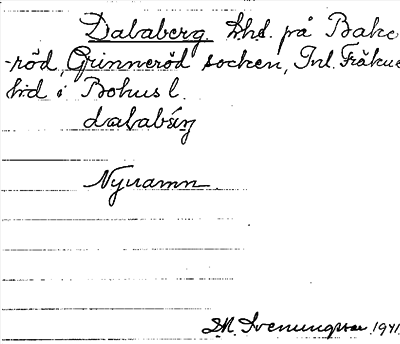 Dalaberg. Lhs. på Bakc
-röd, Grinneröd socken, Inl. Fräkne
hrd i Bohusl.
dalabäŗj
Nynamn.
D.M. Svenungsson 1941.